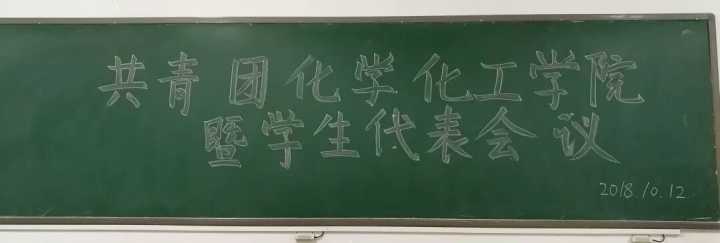 共青团化学化工学院
暨学生代表会议
2018.10.12